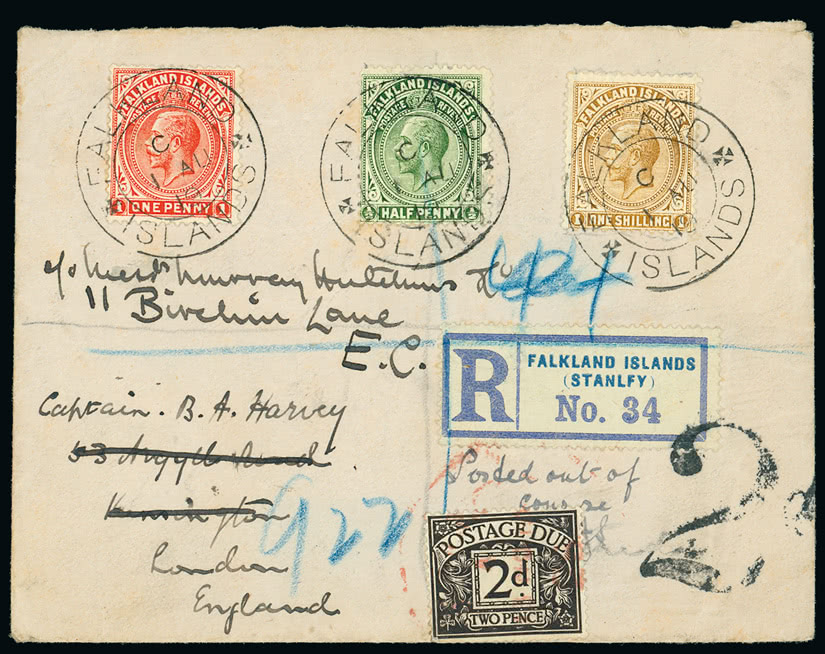 FALKLAND ISLANDS
POSTAGE REVENUE
1 ONE PENNY 1
FALKLAND ISLANDS
POSTAGE REVENUE
½ HALF PENNY ½
FALKLAND ISLANDS
POSTAGE REVENUE
1/ ONE SHILLING 1/
FALKLAND
C
1 AU
ISLANDS
FALKLAND
C
AU
ISLANDS
FALKLAND
C
AU
ISLANDS
c/o Messrs Murray Hutchins
11 Birchin Lane
E.C.
R
FALKLAND ISLANDS
(STANLFY)
No. 34
Captain. B. A. Harvey
53 Argyll Road
Kennington
London
England
922
Posted out of
course
POSTAGE DUE
2d.
TWO PENCE
2d